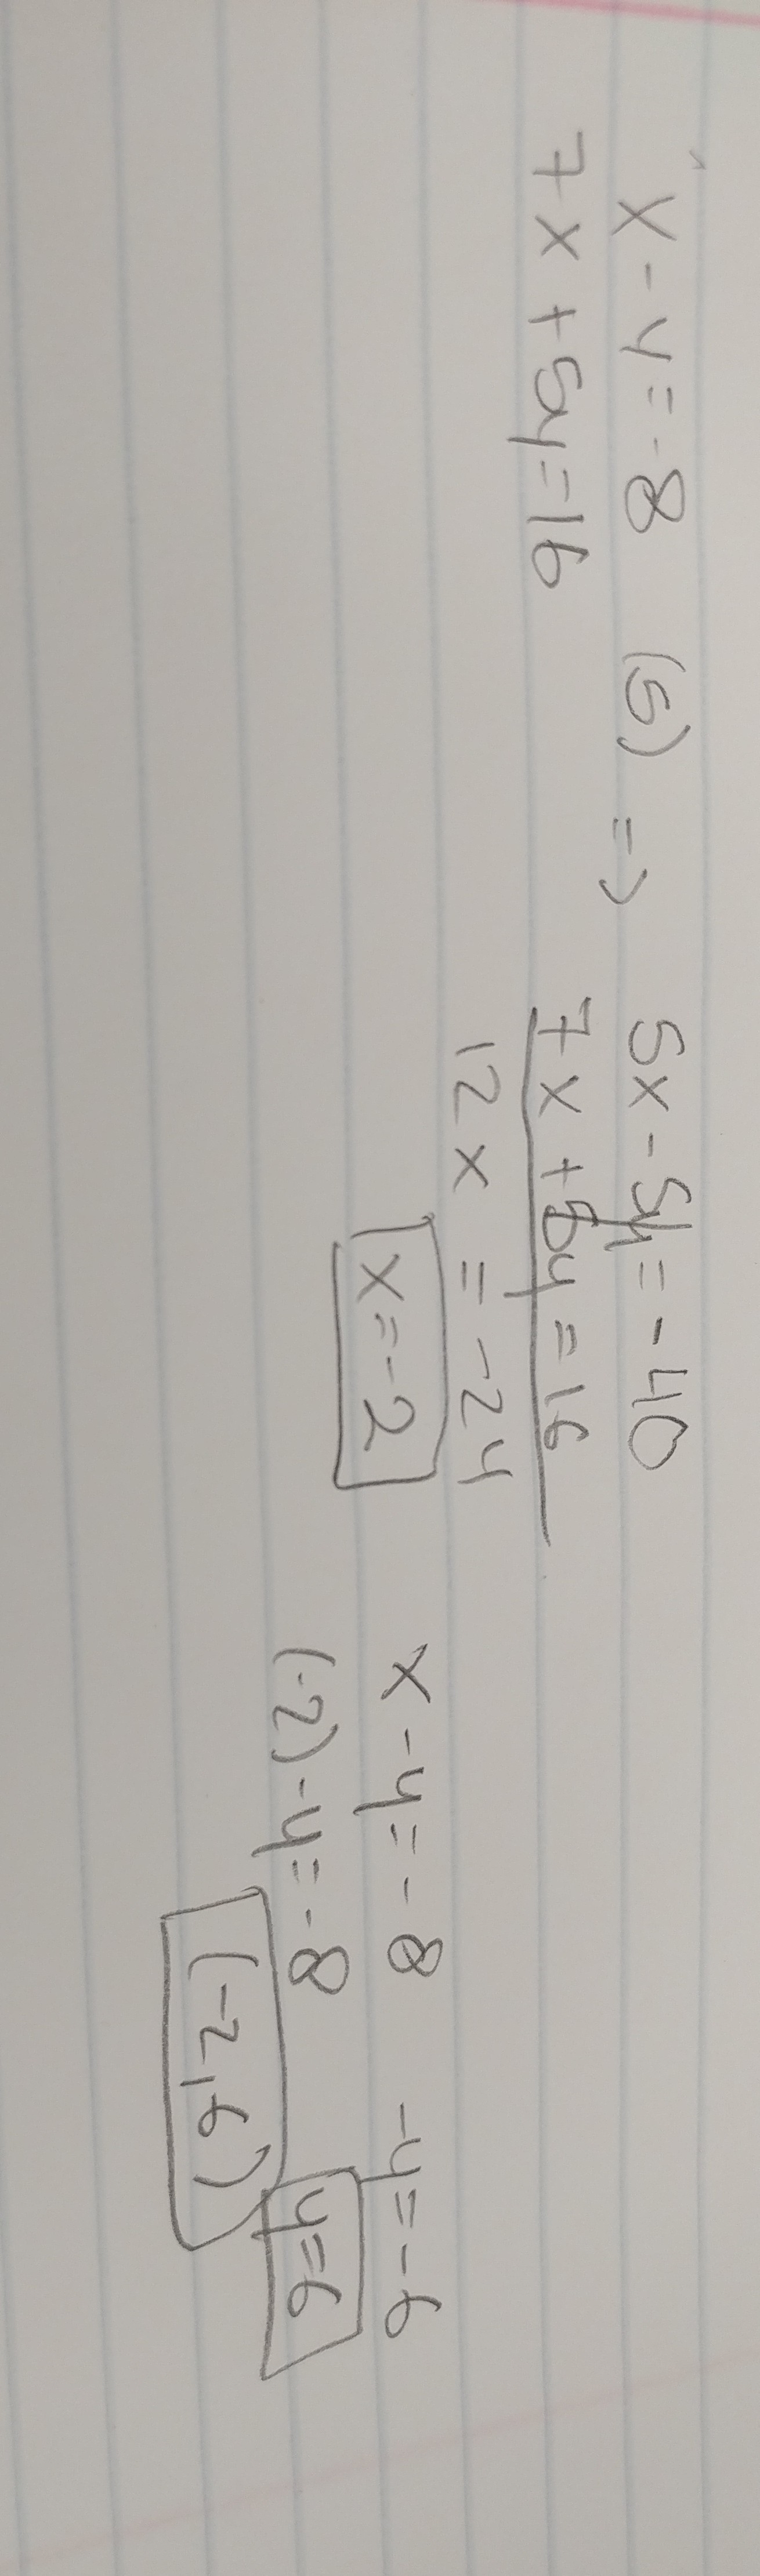 x - y = -8 (5) => 5x - 5y = -40
7x + 5y = 16 7x + 5y = 16
12x = -24
x = -2
x - y = -8 -y = -6
(-2) - y = -8 y = 6
(-2, 6)